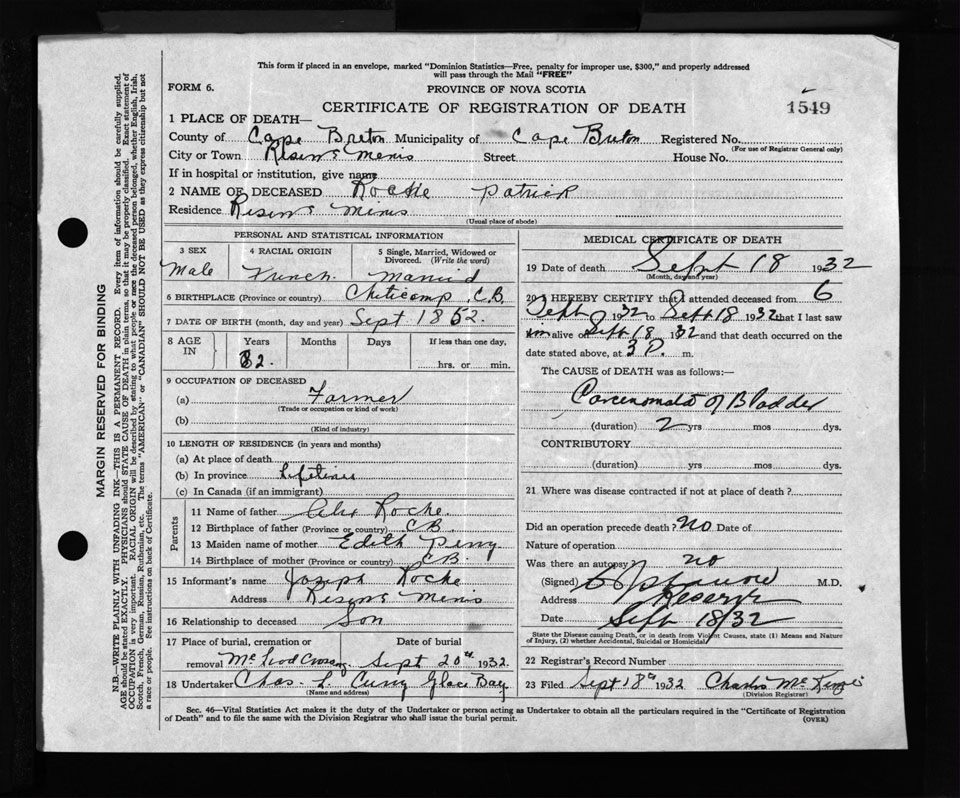 This form if placed in an envelope, marked "Dominion Statistics—Free, penalty for improper use, $300," and properly addressed
will pass through the Mail "FREE"
FORM 6.
PROVINCE OF NOVA SCOTIA
CERTIFICATE OF REGISTRATION OF DEATH
1549
1 PLACE OF DEATH—
County of Cape Breton Municipality of Cape Breton Registered No.
(For use of Registrar General only)
City or Town Reserve Mines Street House No.
If in hospital or institution, give name
2 NAME OF DECEASED Roche Patrick
Residence Reserve Mines
(Usual place of abode)
PERSONAL AND STATISTICAL INFORMATION
3 SEX 4 RACIAL ORIGIN 5 Single, Married, Widowed or
Divorced. (Write the word)
Male French Married
6 BIRTHPLACE (Province or country) Cheticamp C.B.
7 DATE OF BIRTH (month, day and year) Sept 1852.
8 AGE IN Years Months Days If less than one day,
hrs. or min.
82.
9 OCCUPATION OF DECEASED
(a) Farmer
(Trade or occupation or kind of work)
(b)
(Kind of industry)
10 LENGTH OF RESIDENCE (in years and months)
(a) At place of death
(b) In province Lifetime
(c) In Canada (if an immigrant)
Parents
11 Name of father Alex Roche.
12 Birthplace of father (Province or country) C.B.
13 Maiden name of mother Edith Perry
14 Birthplace of mother (Province or country) C.B.
15 Informant's name Joseph Roche
Address Reserve Mines
16 Relationship to deceased Son
17 Place of burial, cremation or Date of burial
removal McLeod Crossing Sept 20th 1932.
18 Undertaker Chas. L. Curry Glace Bay
(Name and address)
MEDICAL CERTIFICATE OF DEATH
19 Date of death Sept 18 1932
(Month, day and year)
20 I HEREBY CERTIFY that I attended deceased from 6
Sept 1932 to Sept 18 1932 that I last saw
him alive on Sept 18 1932 and that death occurred on the
date stated above, at 3 P. m.
The CAUSE of DEATH was as follows:—
Carcenomata of Bladder
(duration) 2 yrs mos dys.
CONTRIBUTORY
(duration) yrs mos dys.
21 Where was disease contracted if not at place of death?
Did an operation precede death? no Date of
Nature of operation
Was there an autopsy no
(Signed) M.D.
Address Reserve
Date Sept 18/32
State the Disease causing Death, or in death from Violent Causes, state (1) Means and Nature
of Injury, (2) whether Accidental, Suicidal or Homicidal
22 Registrar's Record Number
23 Filed Sept 18th 1932 Charles McKenzie
(Division Registrar)
Sec. 46—Vital Statistics Act makes it the duty of the Undertaker or person acting as Undertaker to obtain all the particulars required in the "Certificate of Registration
of Death" and to file the same with the Division Registrar who shall issue the burial permit.
(OVER)
MARGIN RESERVED FOR BINDING
N.B.—WRITE PLAINLY WITH UNFADING INK—THIS IS A PERMANENT RECORD. Every item of information should be carefully supplied.
AGE should be stated EXACTLY. PHYSICIANS should STATE CAUSE OF DEATH in plain terms, so that it may be properly classified. Exact statement of
OCCUPATION is very important. RACIAL ORIGIN will be described by stating to what people or race the deceased person belonged, whether English, Irish,
Scotch, French, German, Russian, Ruthenian, etc. The terms "AMERICAN" or "CANADIAN" SHOULD NOT BE USED as they express citizenship but not
a race or people. See instructions on back of Certificate.